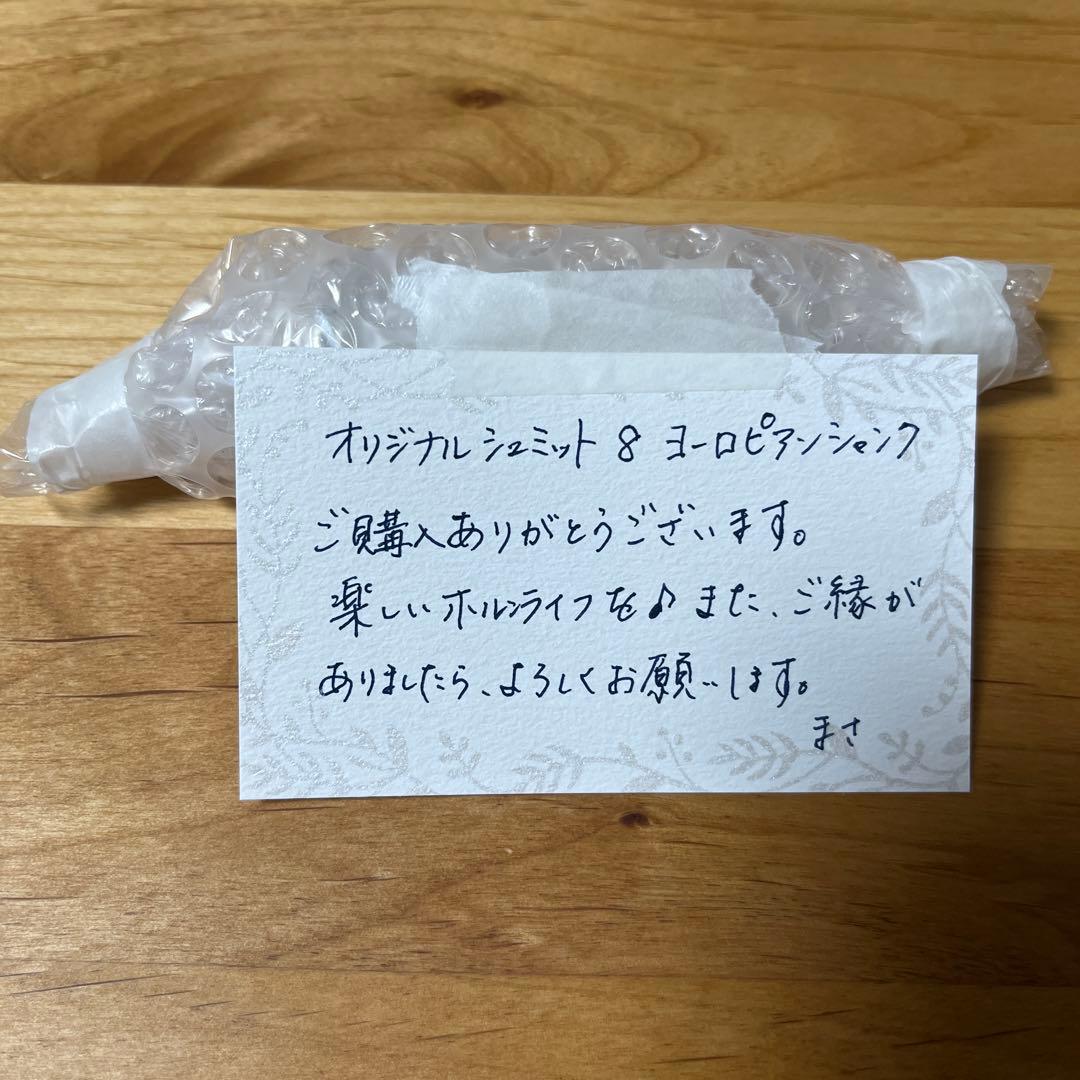 オリジナルシュミット 8 ヨーロピアンシャンク
ご購入ありがとうございます。
楽しいホルンライフを♪また、ご縁が
ありましたら、よろしくお願いします。
まさ